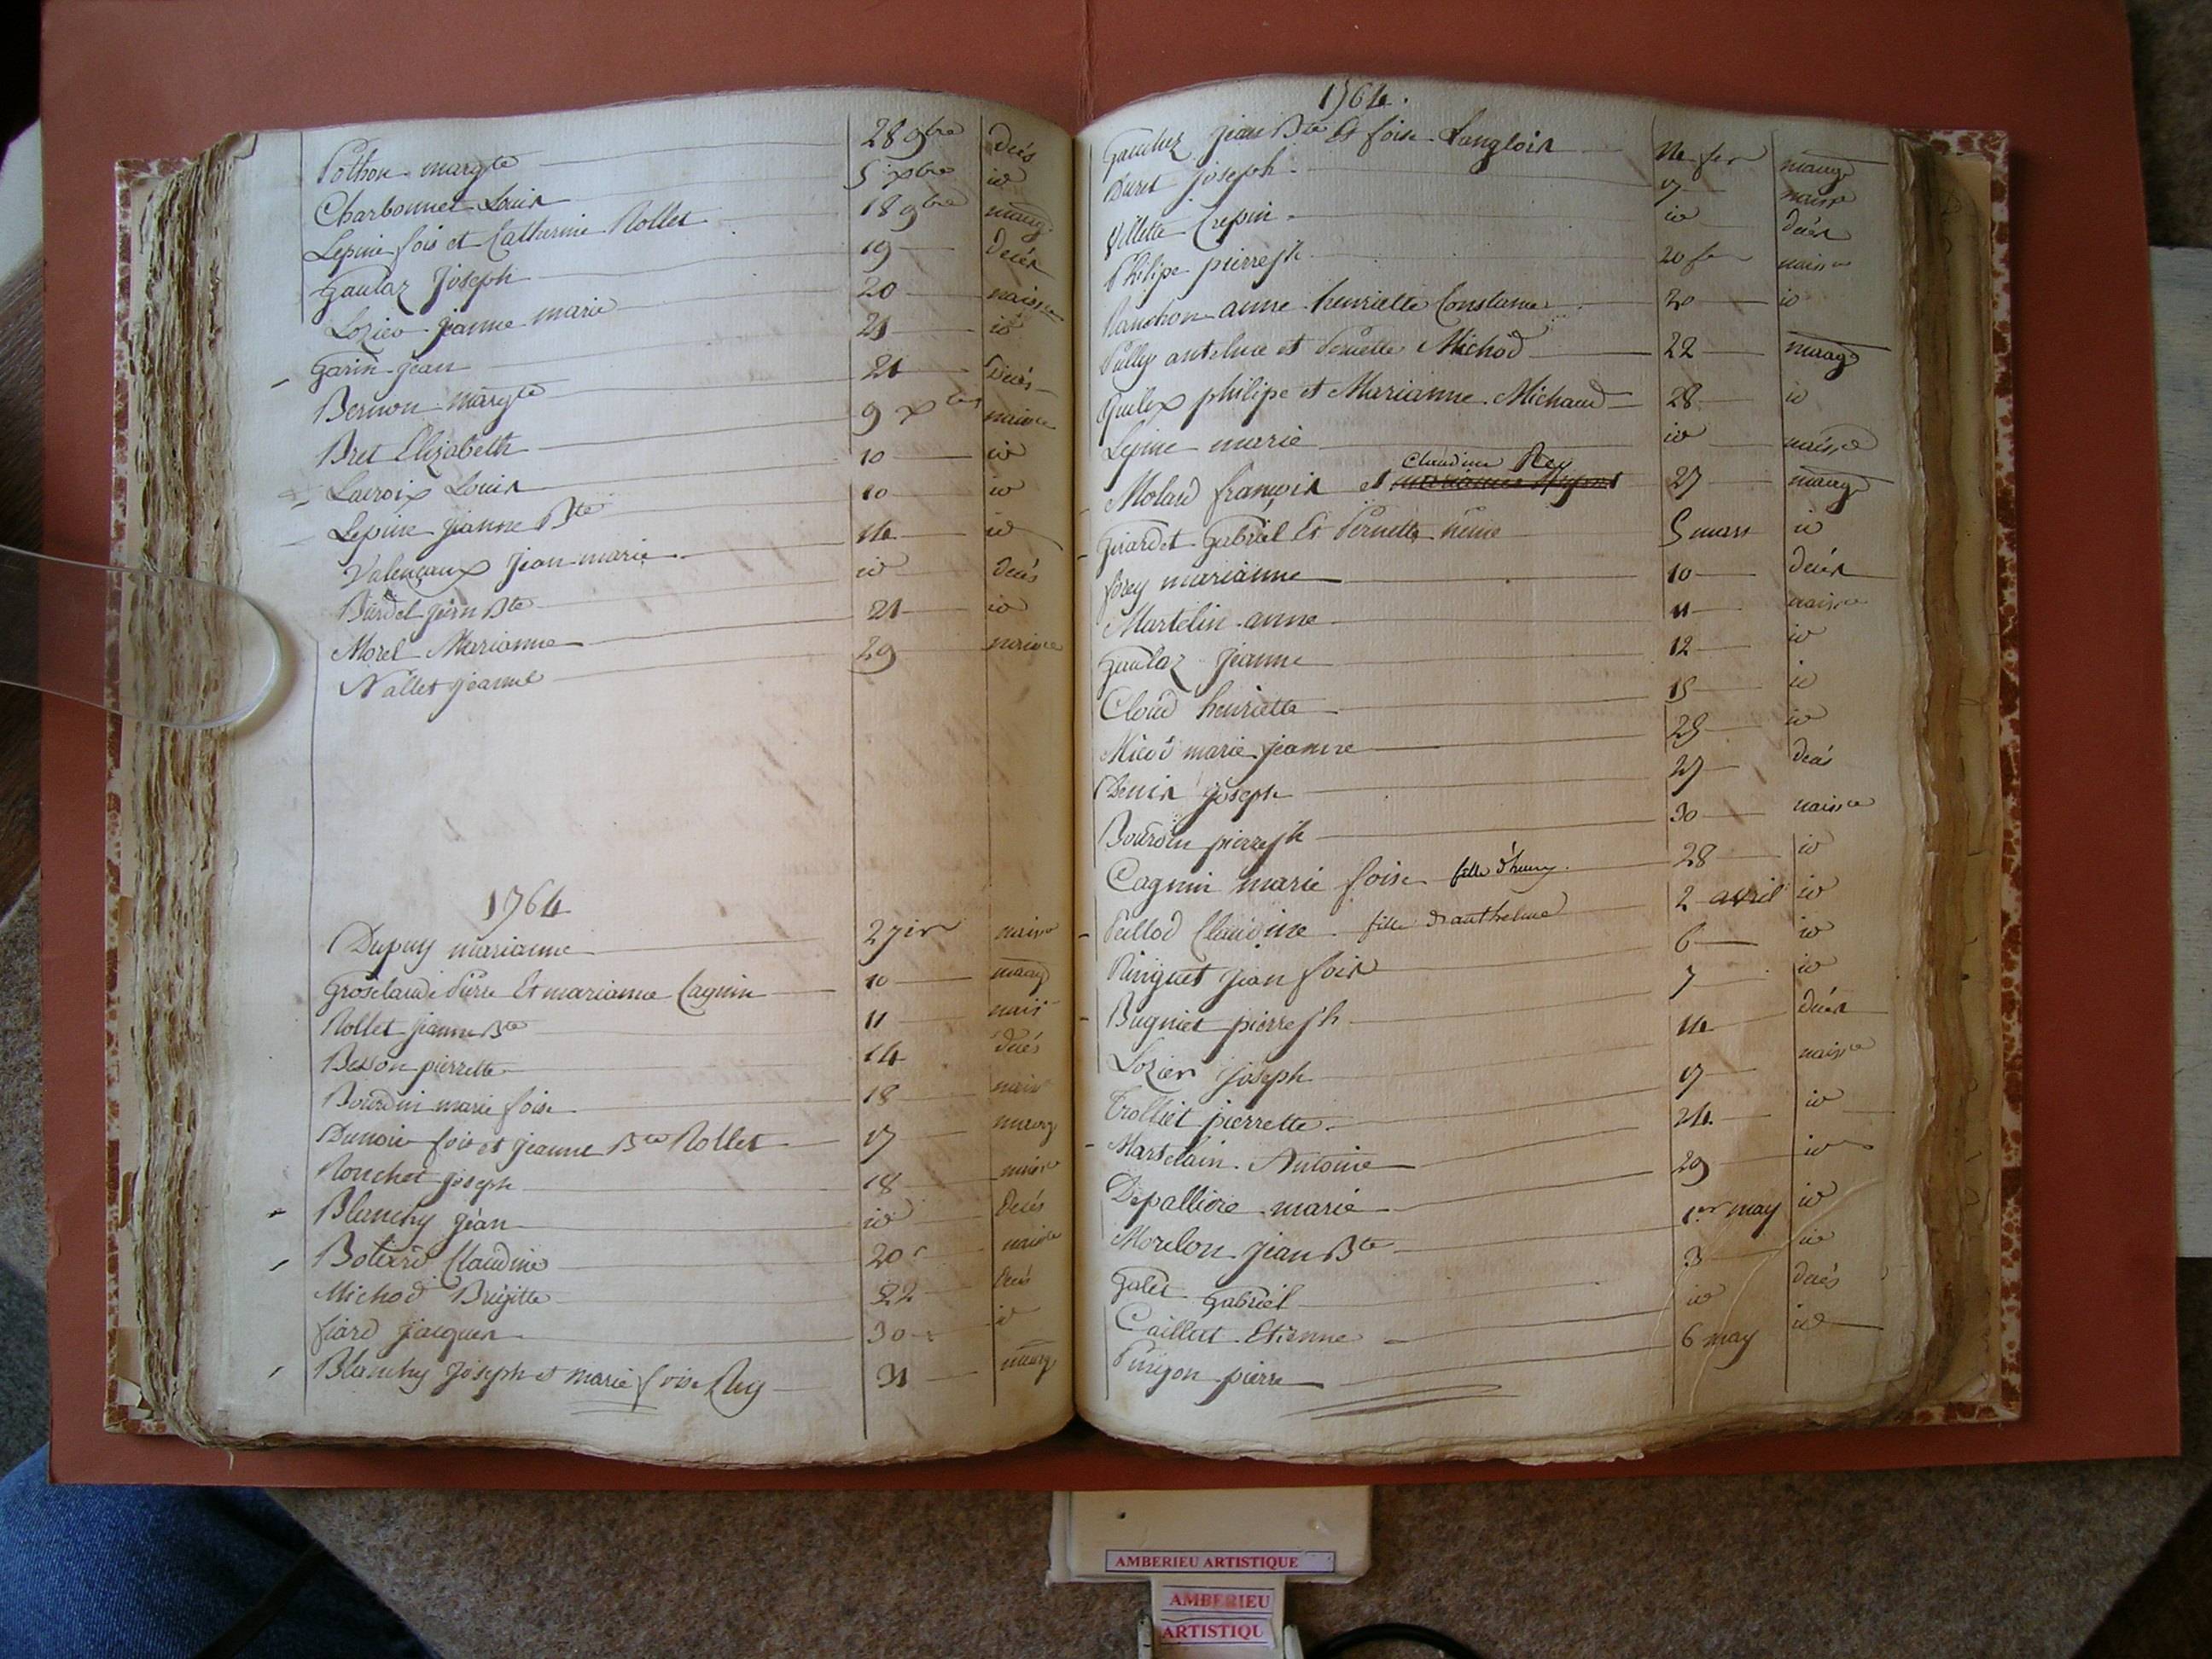 Pothon margte 28 9bre decés
Charbonnet Louis 5 xbre id
Lepine fois et Catherine Rollet 18 9bre mariag
Gaulaz Joseph 19 decés
Lozier jeanne marie 20 naissce
Garin jean 21 id
Bernon margte 21 decés
Bret Elizabeth 9 xbre naissce
Lacroix Louis 10 id
Lepine jeanne Bte 10 id
Valencaux jean marie 14 id
Burdel jean Bte id decés
Morel Marianne 21 id
Nallet jeanne 29 naissce
1764
Dupuy marianne naissce
Grosclaude Pierre Et marianne Cagnin 10 mariag
Rollet jeanne Bte 11 naiss
Besson pierrette 14 decés
Bourdin marie foise 18 naiss
Dunoir fois et jeanne Bte Rollet 17 mariag
Ronchet joseph 18 naissce
Blanchy jean id decés
Botterd Claudine 20 naissce
Michod Brigitte 22 decés
fiard jacques 30 id
Blanchy Joseph et marie foise Rey 31 mariag
1764.
jean Bte Et foise Langlois mariag
Duret joseph 17 naissce
Villette Crepin id decés
Philipe pierre jh 20 naissce
anne henriette Constance 20 id
Pully antelme et Pernette Michod 22 mariag
philipe et Marianne Michaud 28 id
Lepine marie id naissce
Claudine Rey
Molard françois et 27 mariag
Girardet Gabriel Et Pernette 5 mars id
forey marianne 10 decés
Martelin anne 11 naissce
Gaulaz jeanne 12 id
Cloud henriette 15 id
Micod marie jeanne 25 id
Denis joseph 27 decés
Bourdin pierre jh 30 naissce
Cagnin marie foise fille d'henry 28 id
Peillod Claudine fille d'anthelme 2 avril id
Ringuet jean fois 6 id
Bugniet pierre jh 7 id
Lozier joseph 14 decés
Trolliet pierrette 17 naissce
Martelain Antoine 24 id
Depalliere marie 29 id
Morelon jean Bte 1er may id
Galet Gabriel 3 id
Caillat Etienne id decés
Pingon pierre 6 may id
AMBERIEU ARTISTIQUE
AMBERIEU
ARTISTIQU